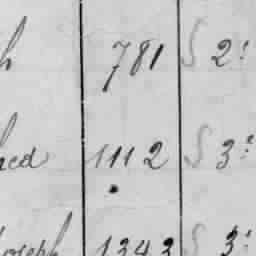 h 781 2:
hed 1112 3:
Joseph 1343 3: